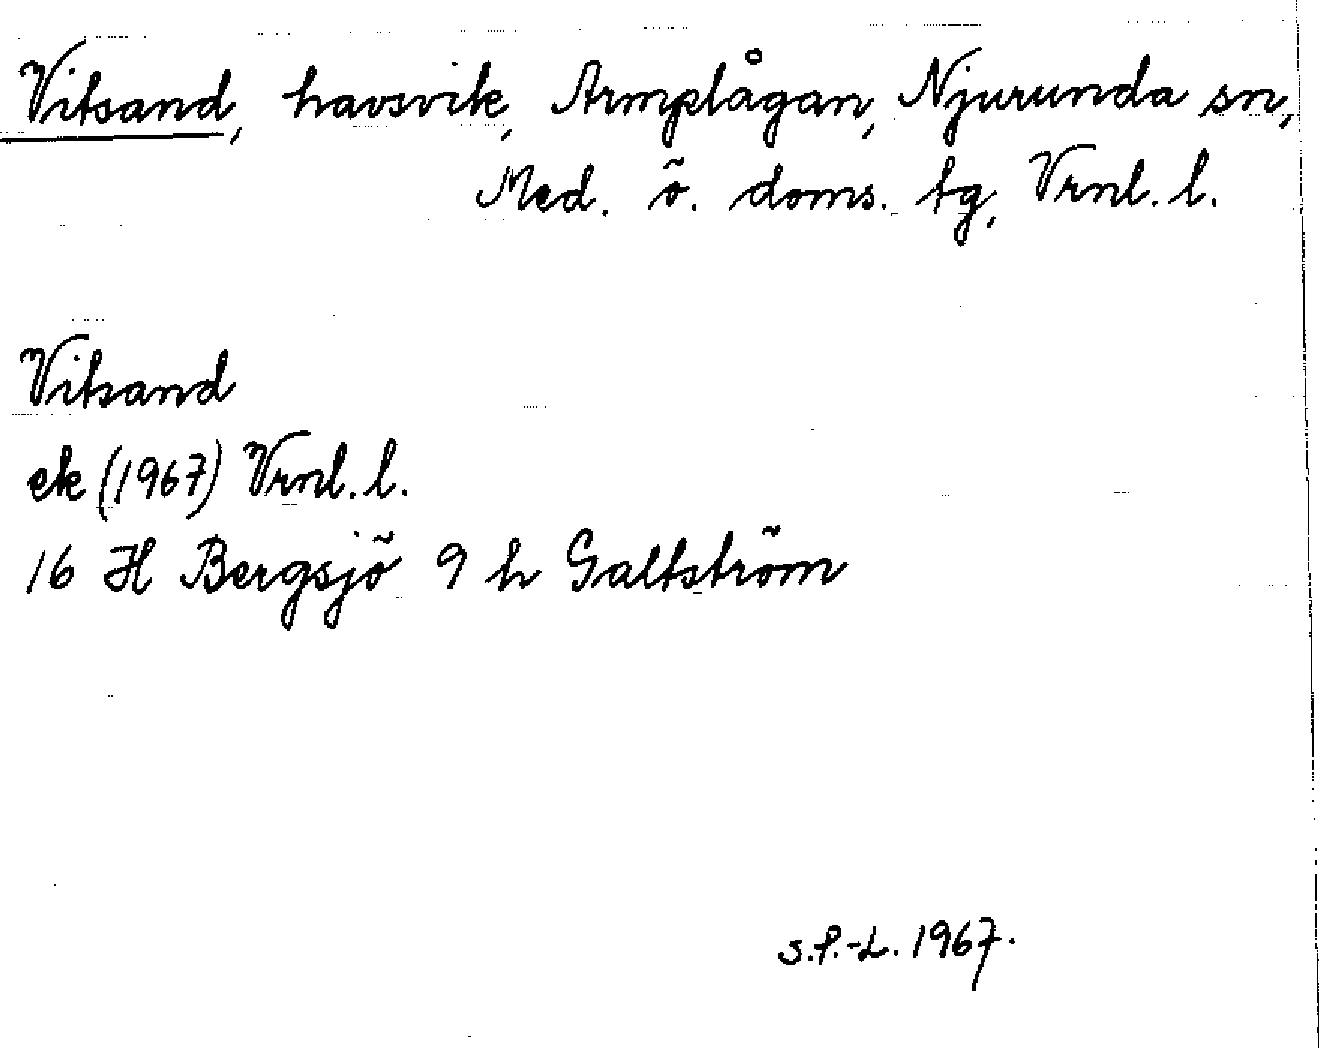 Vitsand, havsvik, Armplågan, Njurunda sn,
Med. ö. doms. tg, Vrnl. l.
Vitsand
ek (1967) Vrnl. l.
16 H Bergsjö 9 h Galtström
S.P.-L. 1967.